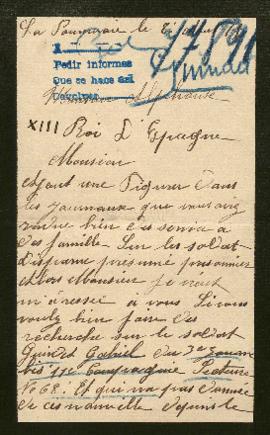 La Pouyade le
Pedir informes
Que se haga así
Devolver
Monsieur Alphonse
XIII Roi D'Espagne
Monsieur
ayant une Figurer dans
les journaux que vous avez
rendre bien des service a
des famille sur les soldat
Disparue présumé prisonnier
et bien Monsieur je veut
m'adresse a vous Si vous
voulez bien faire des
recherche sur le soldat
Guindet Gabriel du 3e zouave
bis 11e Compagnie Secteur
No 68. Et qui na pas donnée
de ces nouvelle depuis le